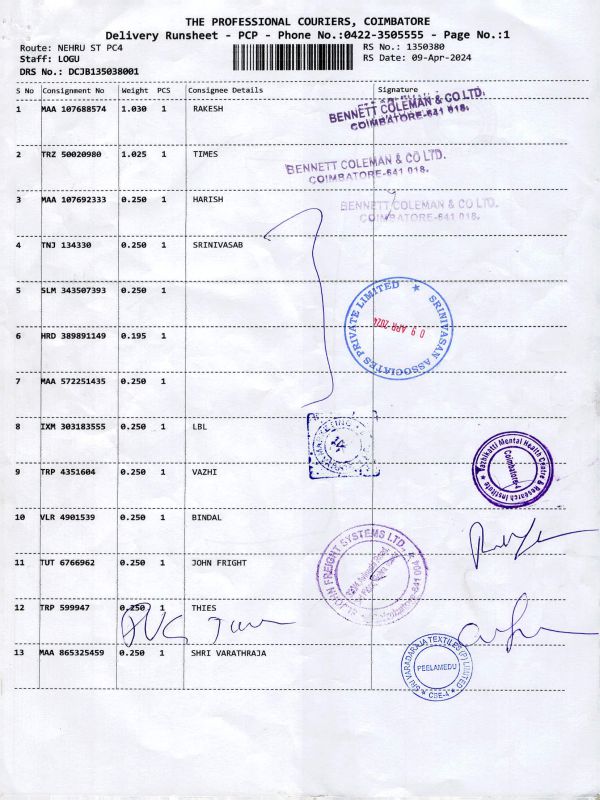 THE PROFESSIONAL COURIERS, COIMBATORE
Delivery Runsheet - PCP - Phone No.:0422-3505555 - Page No.:1
Route: NEHRU ST PC4
RS No.: 1350380
Staff: LOGU
RS Date: 09-Apr-2024
DRS No.: DCJB135038001
S No Consignment No Weight PCS Consignee Details Signature
1 MAA 107688574 1.030 1 RAKESH
BENNETT COLEMAN & CO LTD.
COIMBATORE-641 018.
2 TRZ 50020980 1.025 1 TIMES
BENNETT COLEMAN & CO LTD.
COIMBATORE-641 018.
3 MAA 107692333 0.250 1 HARISH
BENNETT COLEMAN & CO LTD.
COIMBATORE-641 018.
4 TNJ 134330 0.250 1 SRINIVASAB
5 SLM 343507393 0.250 1
SRINIVASAN ASSOCIATES PRIVATE LIMITED
09 APR 2024
6 HRD 389891149 0.195 1
7 MAA 572251435 0.250 1
8 IXM 303183555 0.250 1 LBL
9 TRP 4351604 0.250 1 VAZHI
Vazhikatti Mental Health Centre & Research Institute
Coimbatore-4
10 VLR 4901539 0.250 1 BINDAL
11 TUT 6766962 0.250 1 JOHN FRIGHT
FREIGHT SYSTEMS LTD.,
Coimbatore-641 004
12 TRP 599947 0.250 1 THIES
13 MAA 865325459 0.250 1 SHRI VARATHRAJA
SRI VARADARAJA TEXTILES (P) LIMITED
PEELAMEDU
CBE-4